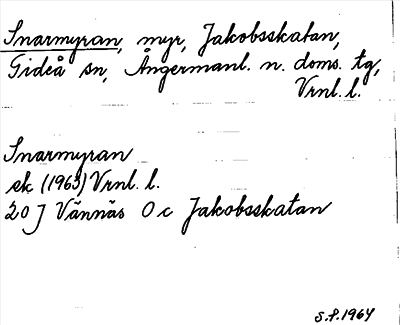 Snarmyran, myr, Jakobsskatan,
Gideå sn, Ångermanl. n. doms. tg,
Vrnl. l.
Snarmyran
sk (1963) Vrnl. l.
20 J Vännäs O c Jakobsskatan
S.P. 1964